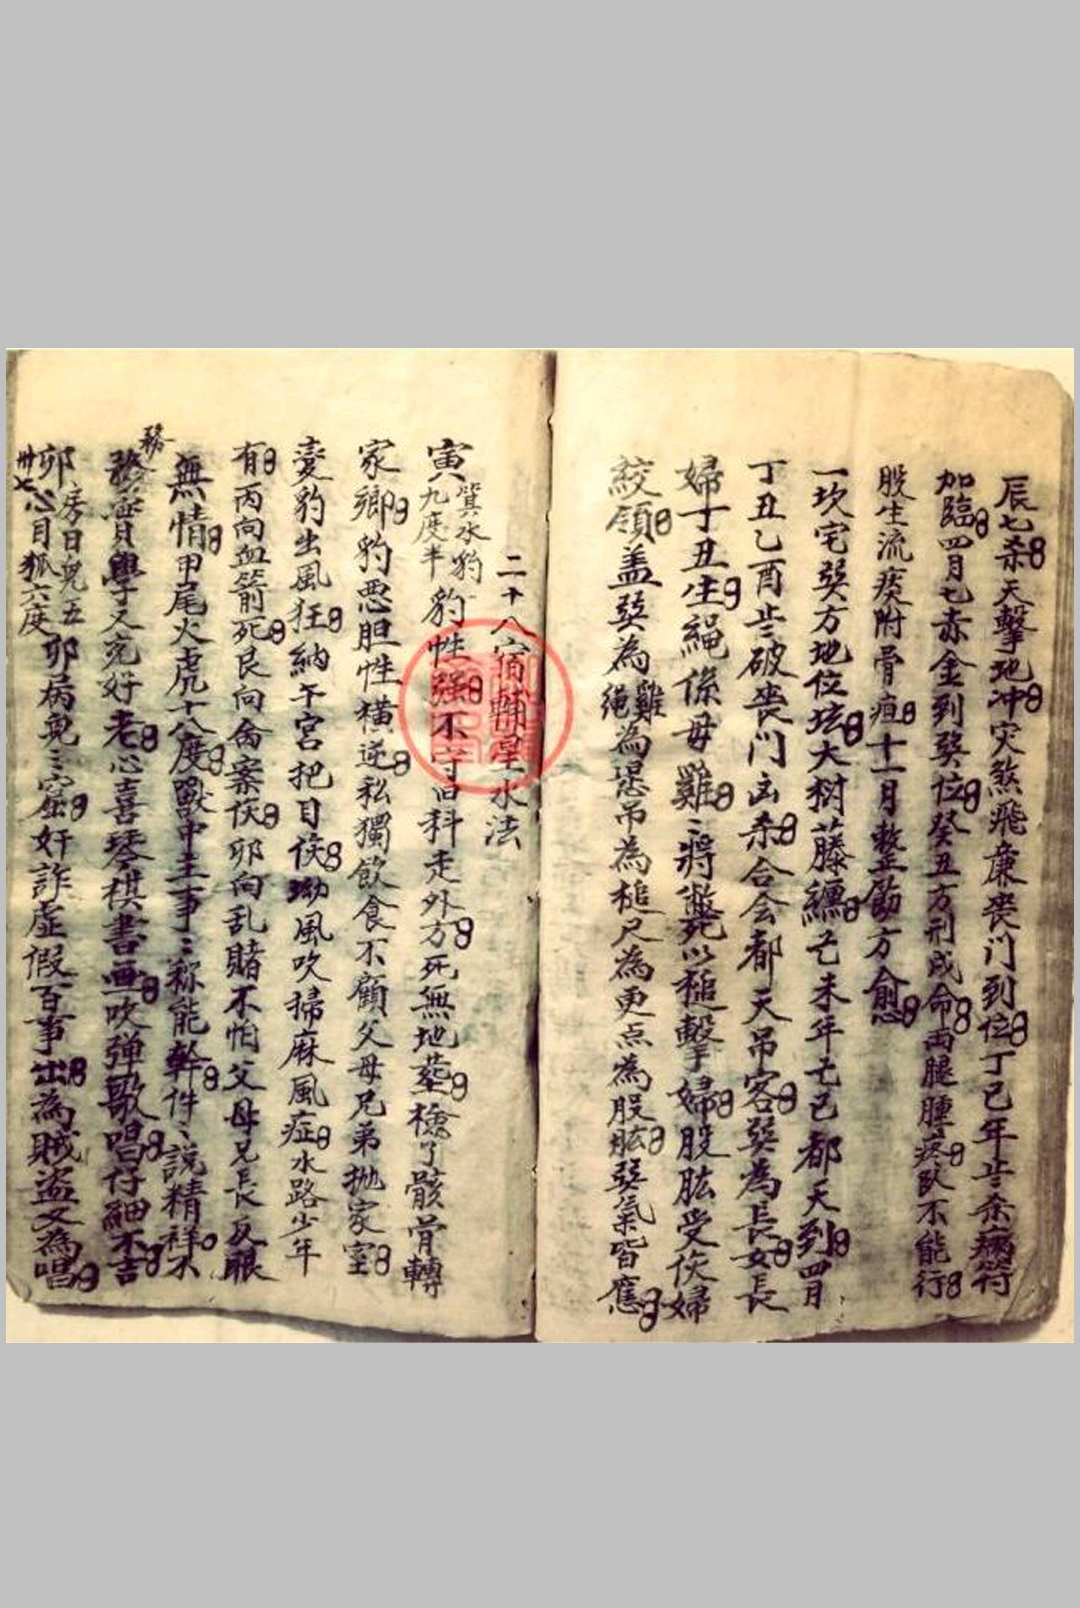 辰七杀天擊地冲灾煞飛廉喪门到位丁巳年歲杀病符
加臨四月七赤金到巽位癸丑方刑戌命両腿腫疼臥不能行
股生流痰附骨疽十一月整勛方愈
一坎宅巽方地位坟大樹藤纏乞未年乞已都天到四月
丁丑乙酉歲破喪门凶杀合会都天吊客巽為長女長
婦丁丑生繩係母雞〻將斃死以槌擊婦股肱受傷婦
絞領盖巽為雞為繩為吊為槌尺為更点為股肱巽氣皆應
二十八宿輔星水法
寅箕水豹九度半豹性强不守旧科走外方死無地塟穚了骸骨轉
家鄉豹悪胆性横逆私獨飲食不顧父母兄弟抛家室
变豹出風狂納午宮把目侯坳風吹掃麻風症水路少年
有丙向血箭死艮向禽案侯卯向乱賭不怕父母兄長反眼
無情甲尾火虎十八度獸中主事〻称能幹件〻說精祥不
務
務貪學又充好老心喜琴棋書画吹弹歌唱仔細不吉
卯房日兔五卅七心月狐六度卯病兔三窟奸詐虚假百事出為賊盗又為唱